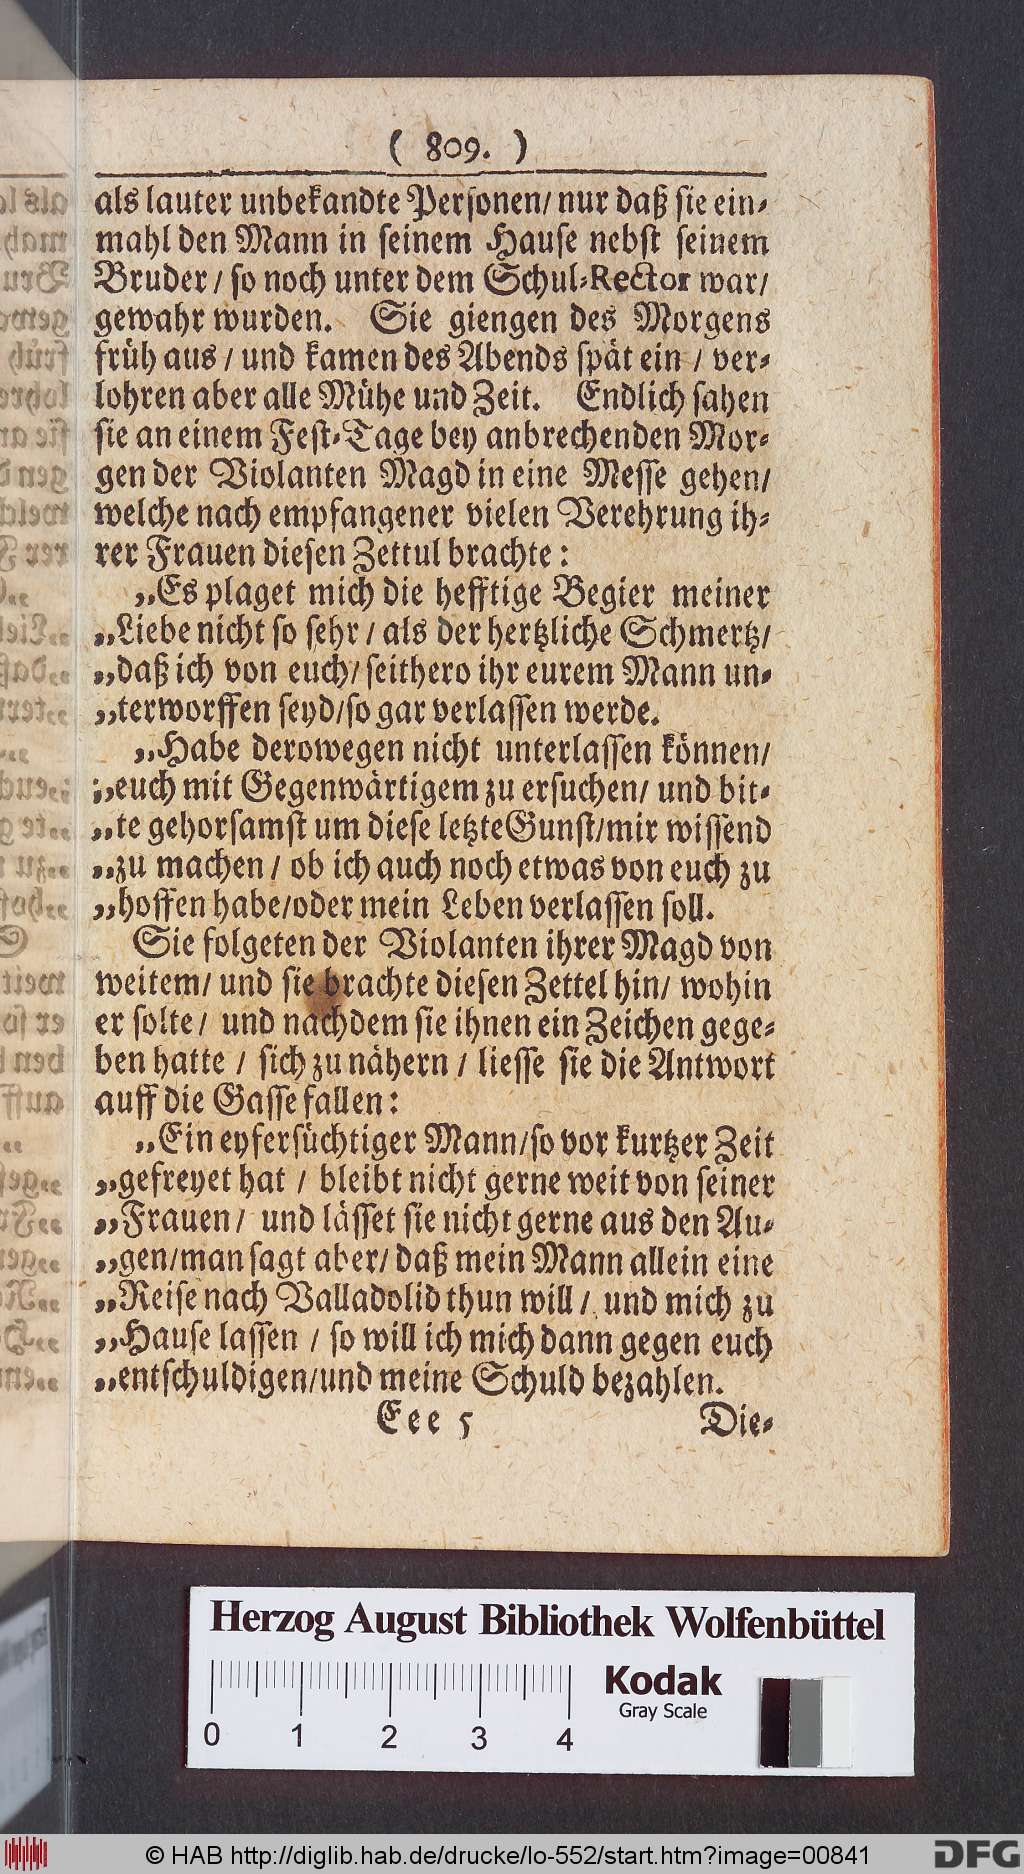 ( 809. )
als lauter unbekandte Personen/ nur daß sie ein-
mahl den Mann in seinem Hause nebst seinem
Bruder / so noch unter dem Schul-Rector war/
gewahr wurden. Sie giengen des Morgens
früh aus / und kamen des Abends spät ein / ver-
lohren aber alle Mühe und Zeit. Endlich sahen
sie an einem Fest-Tage bey anbrechenden Mor-
gen der Violanten Magd in eine Messe gehen/
welche nach empfangener vielen Verehrung ih-
rer Frauen diesen Zettul brachte:
„Es plaget mich die hefftige Begier meiner
„Liebe nicht so sehr / als der hertzliche Schmertz/
„daß ich von euch/ seithero ihr eurem Mann un-
„terworffen seyd/so gar verlassen werde.
„Habe derowegen nicht unterlassen können/
„euch mit Gegenwärtigem zu ersuchen/ und bit-
„te gehorsamst um diese letzte Gunst/mir wissend
„zu machen / ob ich auch noch etwas von euch zu
„hoffen habe/oder mein Leben verlassen soll.
Sie folgeten der Violanten ihrer Magd von
weitem/ und sie brachte diesen Zettel hin/ wohin
er solte / und nachdem sie ihnen ein Zeichen gege-
ben hatte / sich zu nähern / liesse sie die Antwort
auff die Gasse fallen:
„Ein eyfersüchtiger Mann/so vor kurtzer Zeit
„gefreyet hat / bleibt nicht gerne weit von seiner
„Frauen / und lässet sie nicht gerne aus den Au-
„gen/man sagt aber/ daß mein Mann allein eine
„Reise nach Valladolid thun will / und mich zu
„Hause lassen / so will ich mich dann gegen euch
„entschuldigen/und meine Schuld bezahlen.
Eee 5 Die-
Herzog August Bibliothek Wolfenbüttel
Kodak
Gray Scale
0 1 2 3 4
© HAB http://diglib.hab.de/drucke/lo-552/start.htm?image=00841
DFG